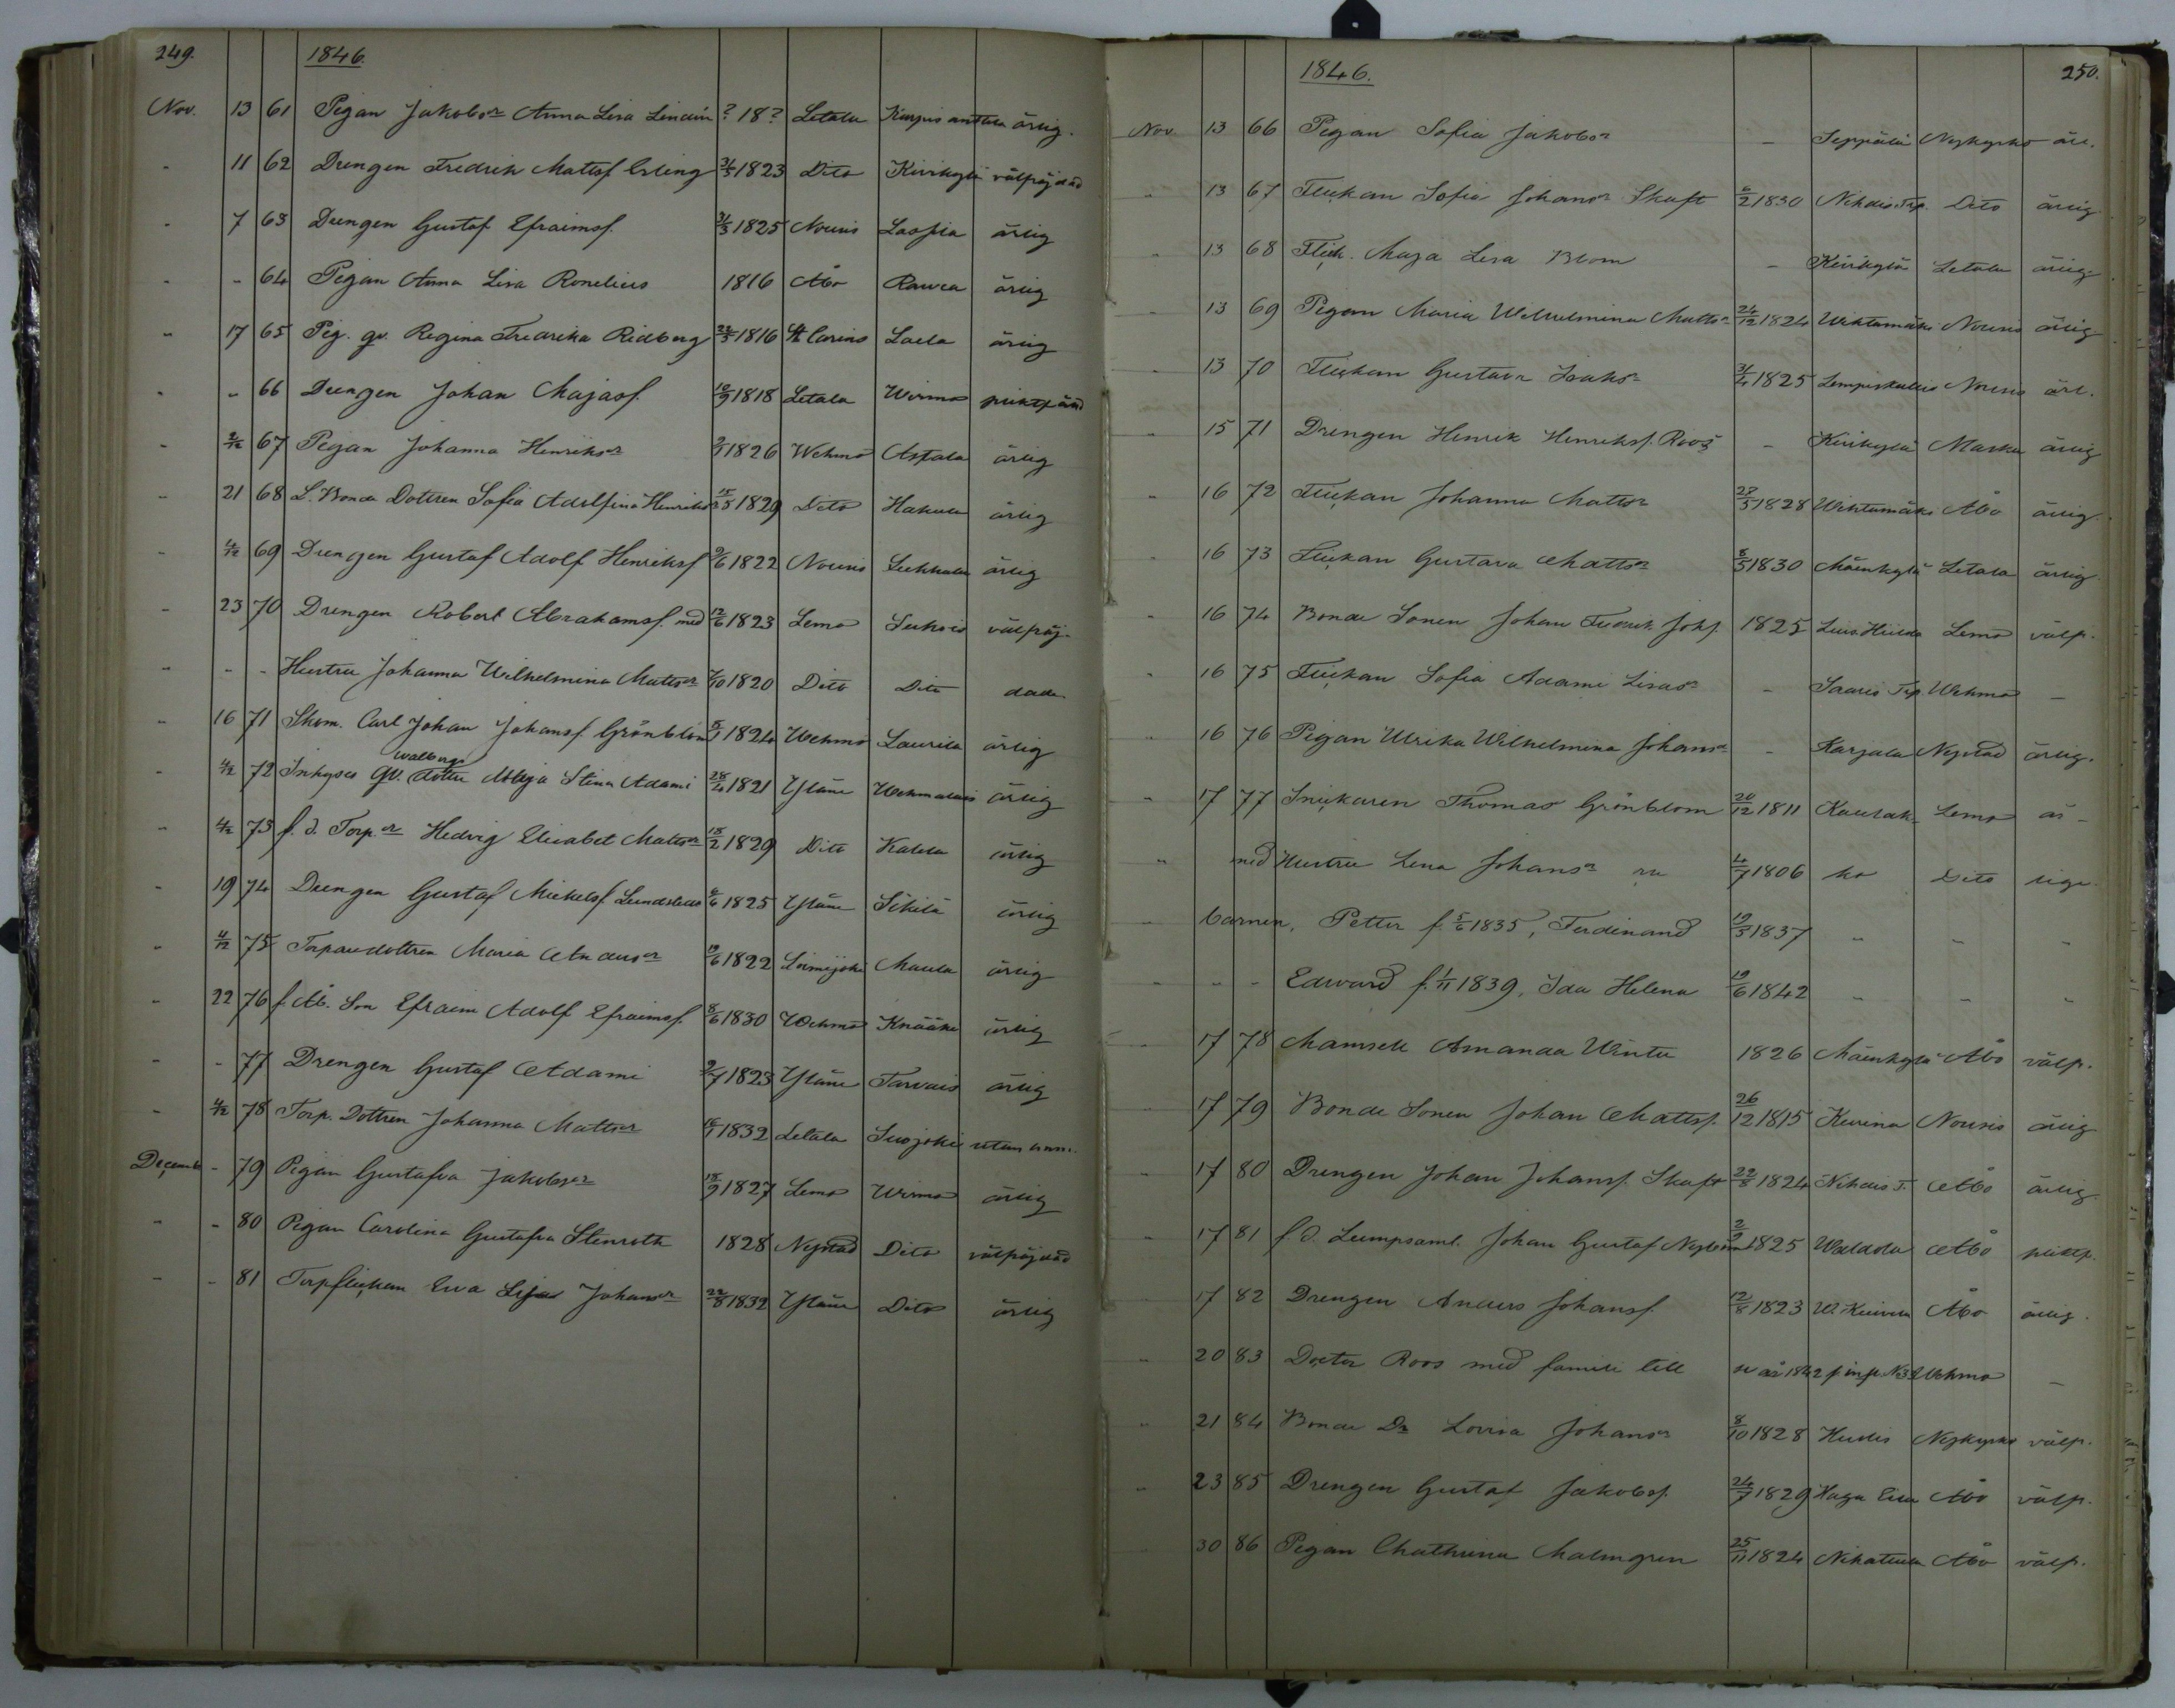 249.
1846.
Nov. 13 61 Pigan Jakobsr Anna Lisa Lindén ? 18? Letala ärlig.
- 11 62 Drengen Fredrik Mattsf. Erling 31/5 1823 Dito Kirikylä välfräjdad
- 7 63 Drengen Gustaf Efraimsf. 31/3 1825 Nousis Laspia ärlig
- - 64 Pigan Anna Lisa Ronelius 1816 Åbo ärlig
- 17 65 Pig. qv. Regina Fredrika Ridberg 22/3 1816 St Carins Laela ärlig
- - 66 Drengen Johan Majasf. 10/9 1818 Letala Wirmo
- 2/12 67 Pigan Johanna Henriksr 1826 Wehmo Astala ärlig
- 21 68 L. Bonde Dottren Sofia Adolfina Henriksr 15/5 1829 Dito Hakula ärlig
- 4/12 69 Drengen Gustaf Adolf Henriksf 9/6 1822 Nousis ärlig
- 23 70 Drengen Robert Abrahamsf. med 12/6 1823 Lemo Leikois välfräj.
- - - Hustru Johanna Wilhelmina Mattsr 7/10 1820 Dito Dito
- 16 71 Skom. Carl Johan Johansf. Grönblom 5/1 1824 Wehmo Laurila ärlig
Walbergs
- 4/12 72 Inhyses qv. dotter Maja Stina Adami 28/4 1821 Yläne Wehmalais ärlig
- 4/12 73 f. d. Torp.r Hedvig Elisabet Mattsr 18/2 1829 Dito Kalela ärlig
- 19 74 Drengen Gustaf Mickelsf. 6/6 1825 Yläne Sikilä ärlig
- 4/12 75 Torparedottren Maria Andersr 19/6 1822 Loimijoki Maula ärlig
- 22 76 f. Åb. Son Efraim Adolf Efraimsf. 8/6 1830 Wehmo Knaäke ärlig
- - 77 Drengen Gustaf Adami 9/7 1823 Yläne Tarvais ärlig
- 4/12 78 Torp. Dottren Johanna Mattsr 16/1 1832 Letala Suojoki utan anm.
December - 79 Pigan Gustafva Jakobsr 18/9 1827 Lemo Wirmo ärlig
- - 80 Pigan Carolina Gustafva Stenroth 1828 Nystad Dito välfräjdad
- - 81 Torpflickan Eva Lisa Johansr 22/8 1832 Yläne Dito ärlig
250.
1846.
Nov. 13 66 Pigan Sofia Jakobsr - Seppälä Nykyrko ärl.
" 13 67 Flickan Sofia Johansr Skaft 6/2 1830 Nihdis Trp. Dito ärlig
" 13 68 Flick. Maja Lisa Blom - Kirikylä Letala ärlig
13 69 Pigan Maria Wilhelmina Mattsr 24/12 1824 Wihtamäki Nousis ärlig
- 13 70 Flickan Gustava Isaksr 31/4 1825 Nousis ärl.
- 15 71 Drengen Henrik Henriksf. Roos - Kirikylä Masku ärlig
" 16 72 Flickan Johanna Mattsr 28/5 1828 Wihtamäki Åbo ärlig
- 16 73 Flickan Gustava Mattsr 8/5 1830 Mäenkylä Letala ärlig
- 16 74 Bonde Sonen Johan Fredrik Johsf. 1825 Lemo välf.
- 16 75 Flickan Sofia Adami Lisasr - Saaris Trp. Wehmo -
" 16 76 Pigan Ulrika Wilhelmina Johansr - Karjala Nystad ärlig.
" 17 77 Snickaren Thomas Grönblom 20/12 1811 Lemo är-
" med Hustru Lena Johansr 4/7 1806 Dito liga.
- barnen, Petter f. 5/6 1835, Ferdinand 19/3 1837 " " "
- " - Edward f. 1/11 1839, Ida Helena 19/6 1842 " - "
17 78 Mamsell Amanda Winter 1826 Mäenkylä Åbo välf.
17 79 Bonde Sonen Johan Mattsf. 26/12 1815 Nousis ärlig
" 17 80 Drengen Johan Johansf. Skaft 22/8 1824 Nihdis T. Åbo ärlig
" 17 81 f d. Lumpsaml. Johan Gustaf Nyblom 2/9 1825 Waldola Åbo
" 17 82 Drengen Anders Johansf. 12/8 1823 Åbo ärlig.
- 20 83 Docter Roos med familie till Wehmo -
" 21 84 Bonde Dr Lovisa Johansr 8/10 1828 Nykyrko välf.
" 23 85 Drengen Gustaf Jakobsf. 24/7 1829 Åbo välf.
30 86 Pigan Chatharina Malmgren 25/11 1824 Åbo välf.